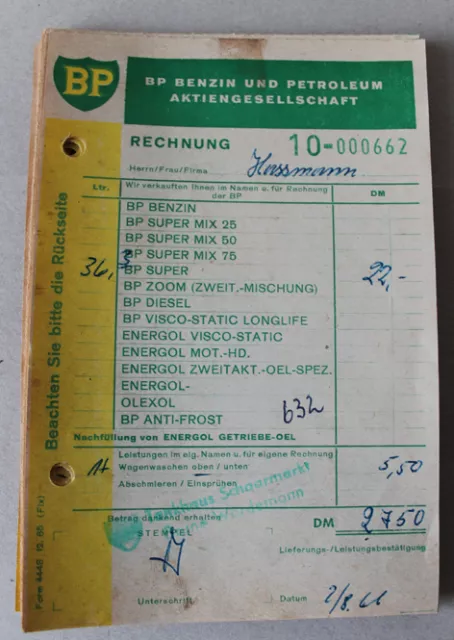 BP
BP BENZIN UND PETROLEUM
AKTIENGESELLSCHAFT
RECHNUNG 10-000662
Herrn/Frau/Firma Hassmann
Ltr. Wir verkauften Ihnen im Namen u. für Rechnung der BP DM
BP BENZIN
BP SUPER MIX 25
BP SUPER MIX 50
BP SUPER MIX 75
36,3 BP SUPER 22,-
BP ZOOM (ZWEIT.-MISCHUNG)
BP DIESEL
BP VISCO-STATIC LONGLIFE
ENERGOL VISCO-STATIC
ENERGOL MOT.-HD.
ENERGOL ZWEITAKT.-OEL-SPEZ.
ENERGOL-
OLEXOL 632
BP ANTI-FROST
Nachfüllung von ENERGOL GETRIEBE-OEL
Leistungen im eig. Namen u. für eigene Rechnung
Wagenwaschen oben / unten 5,50
Abschmieren / Einsprühen
Tankhaus Schaarmarkt
Betrag dankend erhalten DM 2750
STEMPEL
Lieferungs-/Leistungsbestätigung
Unterschrift Datum 2/8.66
Beachten Sie bitte die Rückseite
Form 4448 12. 65 (Fix)